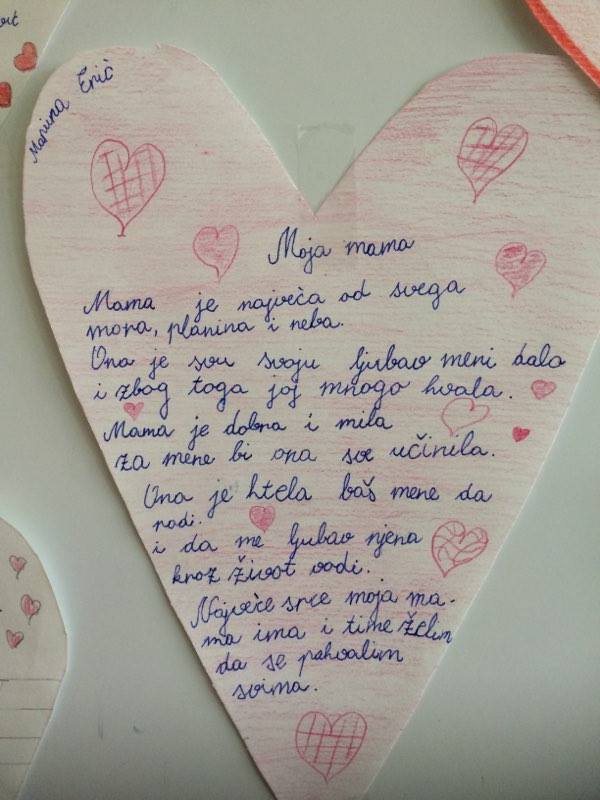 Marina Erić
Moja mama
Mama je najveća od svega
mora, planina i neba.
Ona je svu svoju ljubav meni dala
i zbog toga joj mnogo hvala.
Mama je dobra i mila
za mene bi ona sve učinila.
Ona je htela baš mene da
rodi.
i da me ljubav njena
kroz život vodi.
Najveće srce moja ma-
ma ima i time želim
da se pohvalim
svima.